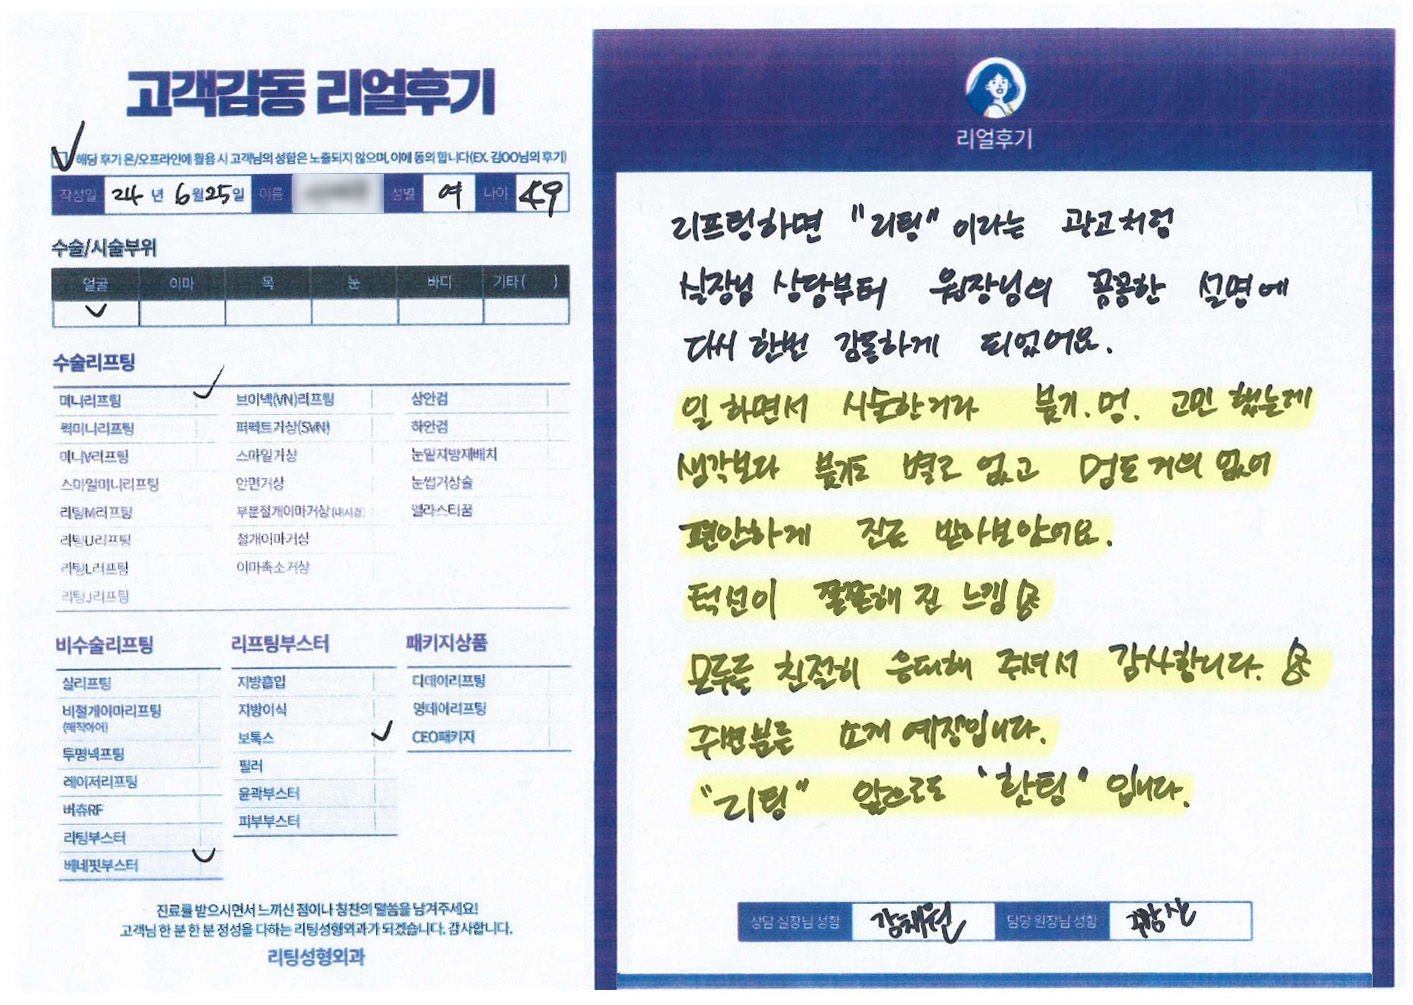 고객감동 리얼후기
해당 후기 온/오프라인에 활용 시 고객님의 성함은 노출되지 않으며, 이에 동의 합니다(EX. 김OO님의 후기)
작성일 24년 6월 25일 이름 성별 여 나이 49
수술/시술부위
얼굴 이마 목 눈 바디 기타( )
수술리프팅
미니리프팅 브이넥(VN)리프팅 상안검
퀵미니리프팅 퍼펙트거상(SVN) 하안검
미니V리프팅 스마일거상 눈밑지방재배치
스마일미니리프팅 안면거상 눈썹거상술
리팅M리프팅 부분절개이마거상(내시경) 엘라스티꿈
리팅U리프팅 절개이마거상
리팅L리프팅 이마축소거상
리팅J리프팅
비수술리프팅 리프팅부스터 패키지상품
실리프팅 지방흡입 디데이리프팅
비절개이마리프팅 지방이식 영데이리프팅
(매직아이)
보톡스 CEO패키지
투명넥프팅 필러
레이저리프팅 윤곽부스터
버츄RF 피부부스터
리팅부스터
베네핏부스터
진료를 받으시면서 느끼신 점이나 칭찬의 말씀을 남겨주세요!
고객님 한 분 한 분 정성을 다하는 리팅성형외과가 되겠습니다. 감사합니다.
리팅성형외과
리얼후기
리프팅하면 "리팅" 이라는 광고처럼
실장님 상담부터 원장님의 꼼꼼한 설명에
다시 한번 감동하게 되었어요.
일 하면서 시술한거라 붓기. 멍. 고민 했는데
생각보다 붓기도 별로 없고 멍도 거의 없어
편안하게 진료 받아보았어요.
턱선이 쫀쫀해 진 느낌
모두들 친절히 응대해 주셔서 감사합니다.
주변분들 소개 예정입니다.
"리팅" 앞으로도 "핫팅" 입니다.
상담 실장님 성함 김채원 담당 원장님 성함